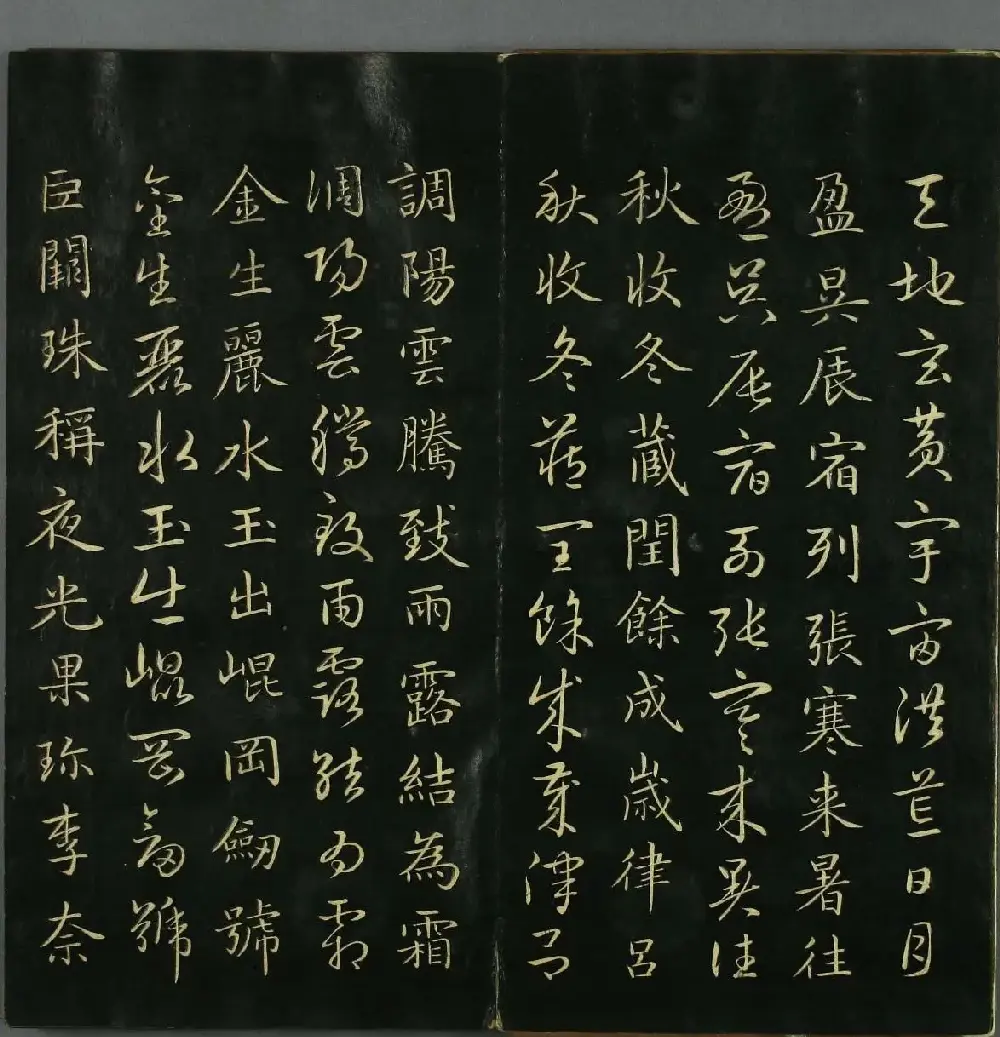 天地玄黃宇宙洪荒日月
盈昃辰宿列張寒来暑往
盈昃辰宿列張寒来暑往
秋收冬藏閏餘成嵗律呂
秋收冬藏閏餘成嵗律呂
調陽雲騰致雨露結為霜
調陽雲騰致雨露結為霜
金生麗水玉出崐岡劒號
金生麗水玉出崐岡劒號
巨闕珠稱夜光果珎李奈